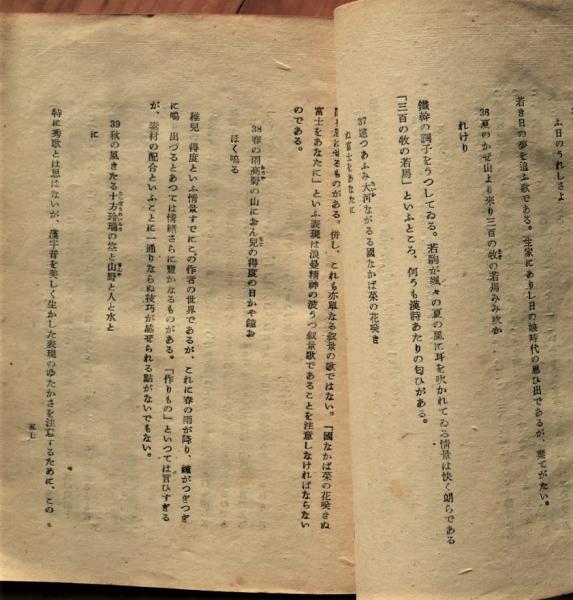 ふ日のうれしさよ
若き日の夢を追ふ歌である。生家にありし日の娘時代の思ひ出であるが、棄てがたい。
36 夏のかぜ山より來り三百の牧の若馬耳吹か
れけり
鐵幹の調子をうつしてゐる。若駒が颯々の夏の風に耳を吹かれてゐる情景は快く朗らである
「三百の牧の若馬」といふところ、何うも漢詩あたりの匂ひがある。
37 遠つあふみ大河ながるる國なかば菜の花咲き
ぬ富士をあなたに
するものがある。併し、これも亦單なる叙景の歌ではない。「國なかば菜の花咲きぬ
富士をあなたに」といふ表現は浪曼精神の波うつ叙景歌であることを注意しなければならない
のである。
38 春の雨高野の山におん兒の得度の日かや鐘お
ほく鳴る
稚兒の得度といふ情景すでにこの作者の世界であるが、これに春の雨が降り、鐘がつぎつぎ
に鳴り出づるとあつては情緒さらに豐かなるものがある。「作りもの」といつては言ひすぎる
が、素材の配合といふことに一通りならぬ技巧が感ぜられる點がないでもない。
39 秋の風きたる十方玲瓏の空と山野と人と水と
に
特に秀歌とは思はないが、漢字音を美しく生かした表現のゆたかさを注意するために、この
五七